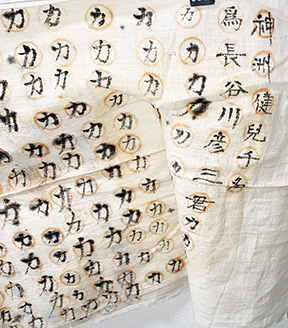 神洲健兒千名
爲長谷川彦三君力
力力力力力力力力力
力力力力力力力力力力
力力力力力力力力力力力
力力力力力力力力力力力
力力力力力力力力力力力
力力力力力力力力力力